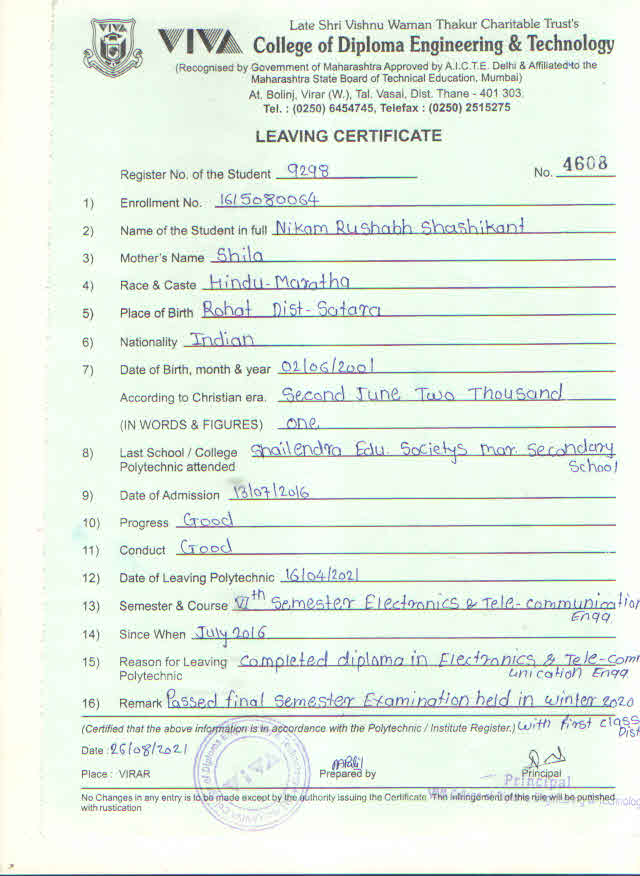 Late Shri Vishnu Waman Thakur Charitable Trust's
VIVA College of Diploma Engineering & Technology
(Recognised by Government of Maharashtra Approved by A.I.C.T.E. Delhi & Affiliated to the
Maharashtra State Board of Technical Education, Mumbai)
At. Bolinj, Virar (W.), Tal. Vasai, Dist. Thane - 401 303.
Tel. : (0250) 6454745, Telefax : (0250) 2515275
LEAVING CERTIFICATE
Register No. of the Student 9298 No. 4608
1) Enrollment No. 1615080064
2) Name of the Student in full Nikam Rushabh Shashikant
3) Mother's Name Shila
4) Race & Caste Hindu-Maratha
5) Place of Birth Rohat Dist- Satara
6) Nationality Indian
7) Date of Birth, month & year 02/06/2001
According to Christian era. Second June Two Thousand
(IN WORDS & FIGURES) one
8) Last School / College Shailendra Edu. Societys mar. Secondary
Polytechnic attended School
9) Date of Admission 13/07/2016
10) Progress Good
11) Conduct Good
12) Date of Leaving Polytechnic 16/04/2021
13) Semester & Course VIth Semester Electronics & Tele-communication
Engg
14) Since When July 2016
15) Reason for Leaving completed diploma in Electronics & Tele-comm
Polytechnic unication Engg
16) Remark Passed final semester Examination held in winter 2020
(Certified that the above information is in accordance with the Polytechnic / Institute Register.) with first class
Dist
Date : 26/08/2021
Place : VIRAR Prepared by Principal
Principal
No Changes in any entry is to be made except by the authority issuing the Certificate. The infringement of this rule will be punished
with rustication
VIVA